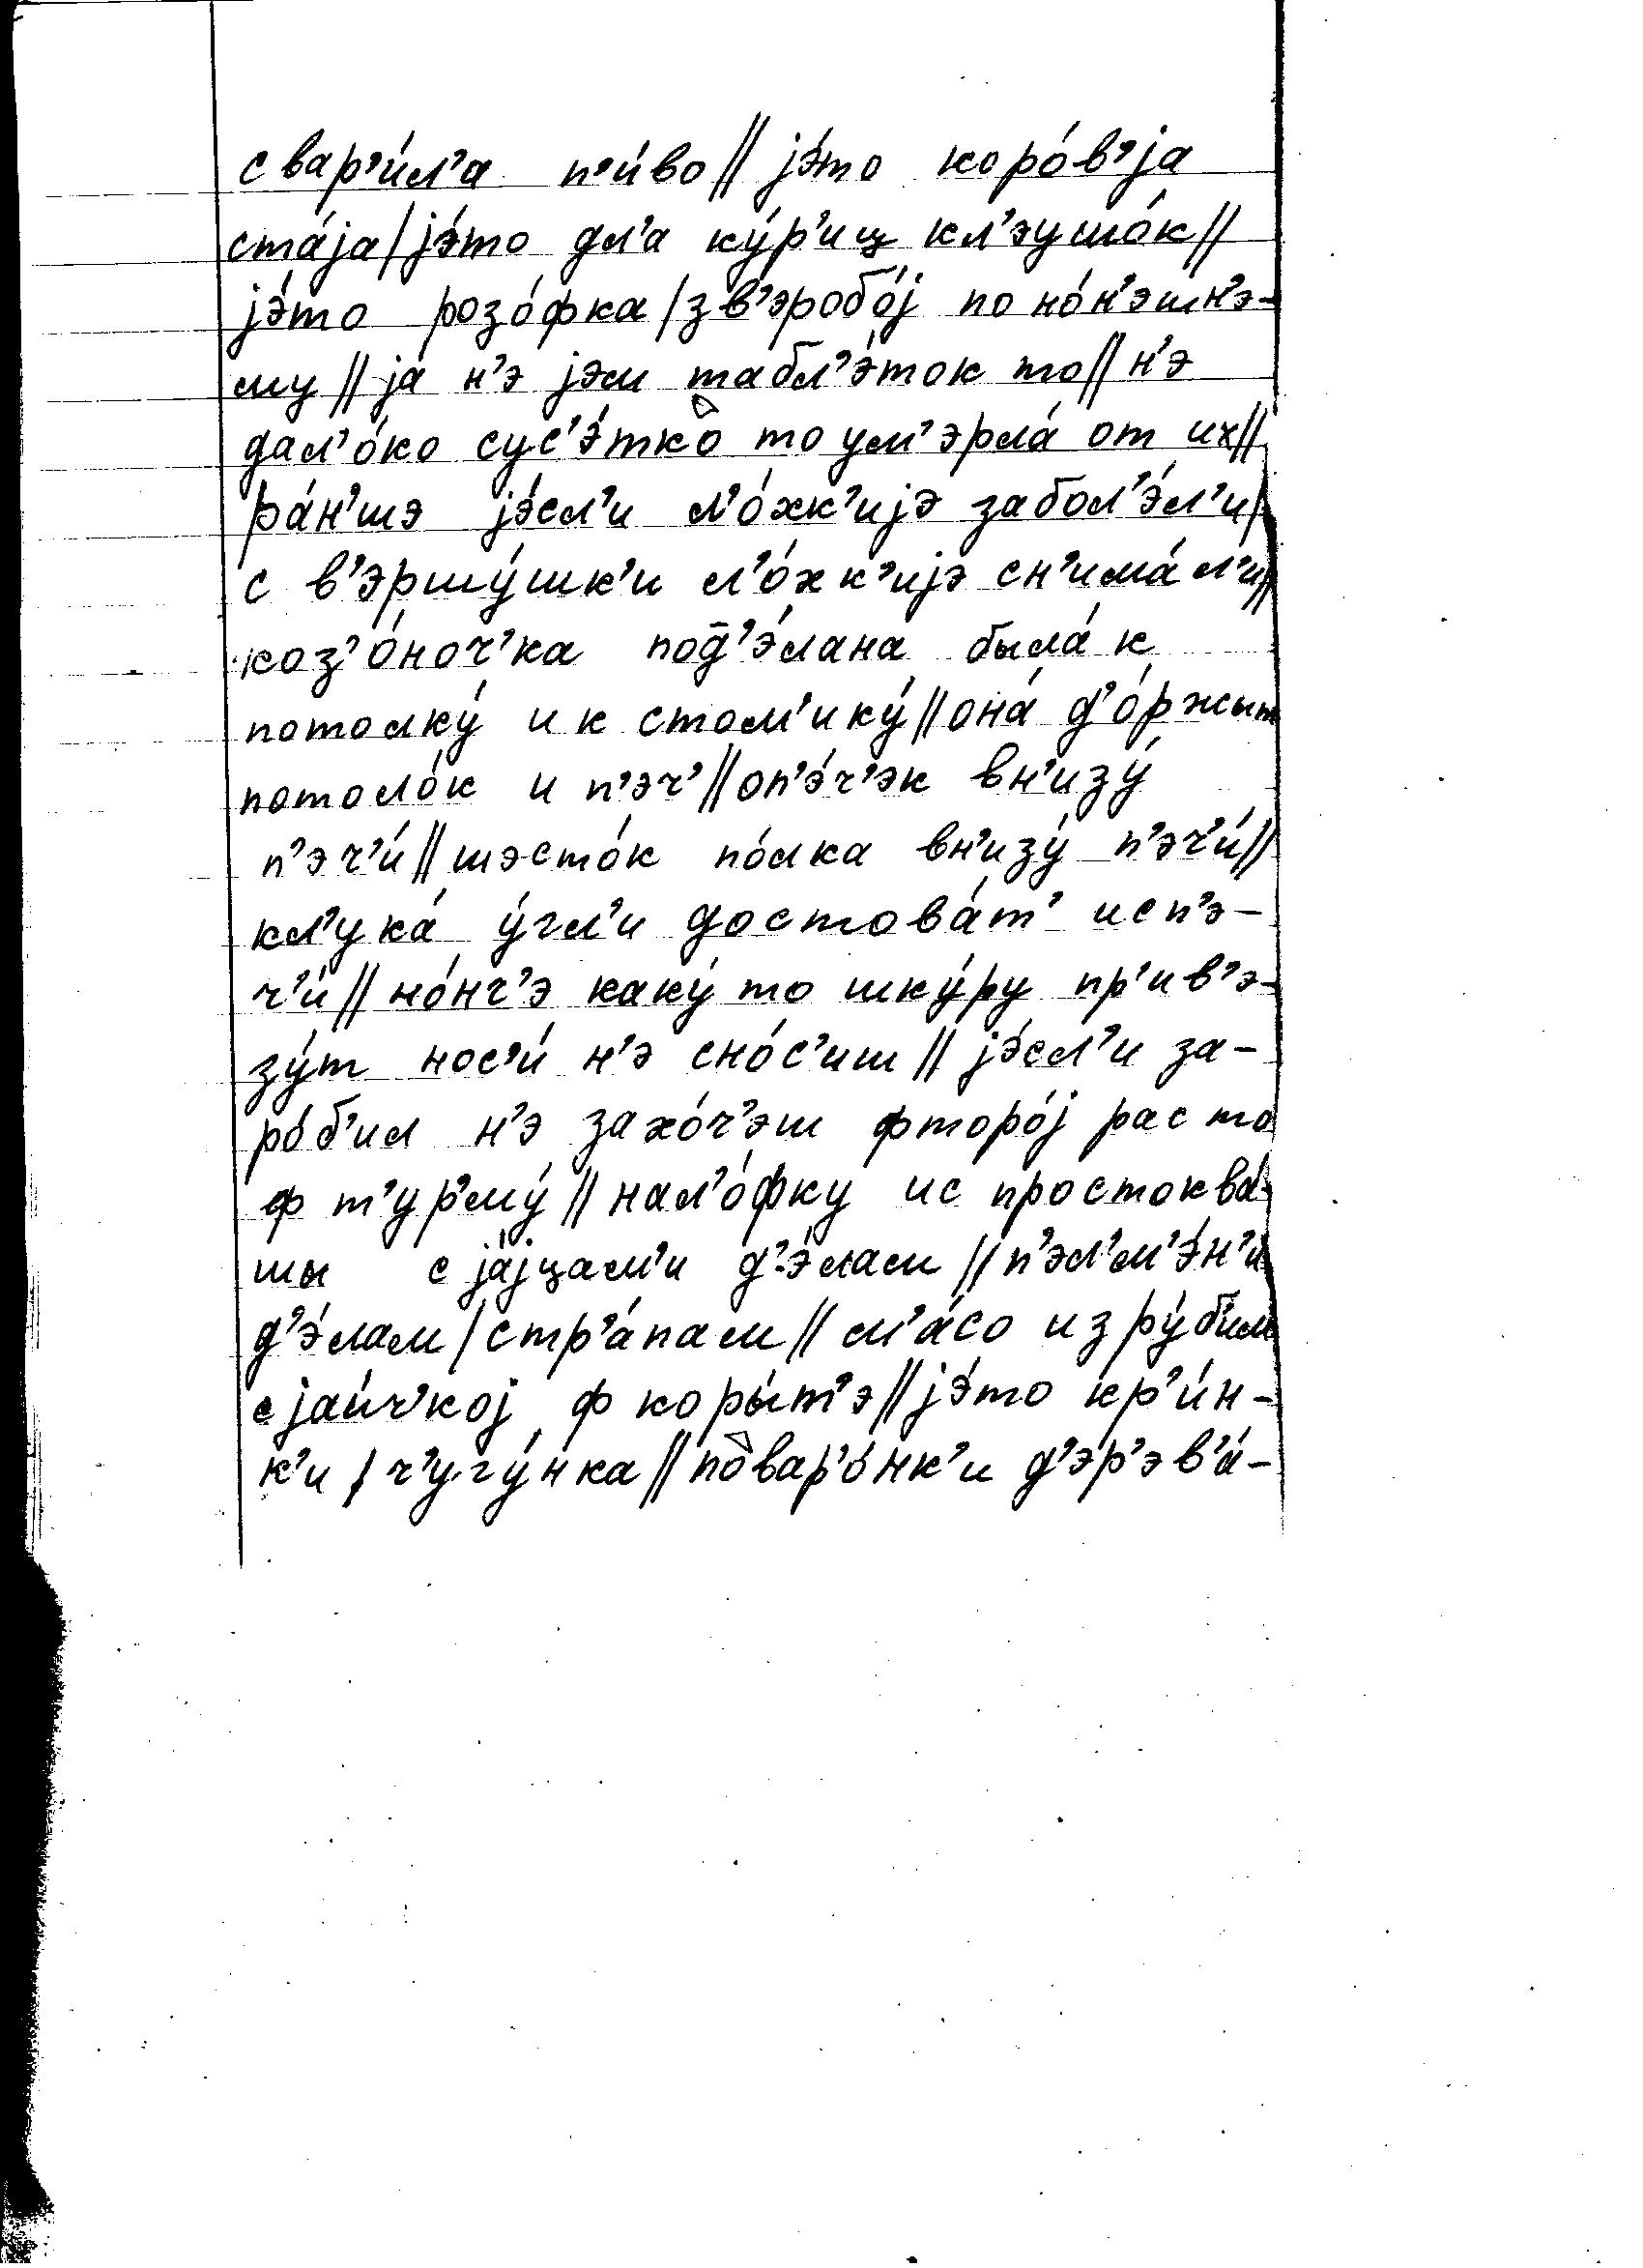 свар'и́л'а п'и́во // jэ́то коро́в'jа
ста́jа / jэ́то дл'а ку́р'иц кл'эушо́к //
jэ́то розо́фка / зв'эробо́j по но́н'эшн'э-
му // jа́ н'э jэм табл'э́ток то // н'э
дал'о́ко сус'э́тка то ум'эрла́ от их //
ра́н'шэ jэ́сл'и л'о́хк'иjэ забол'э́л'и /
с в'эршу́шк'и л'о́хк'иjэ сн'има́л'и //
коз'о́ноч'ка под̄'э́лана была́ к
потолку́ и к стол'ику́ // она́ д'о́ржыт
потоло́к и п'эч' // оп'э́ч'эк вн'изу́
п'эч'и́ // шэсто́к по́лка вн'изу́ п'эч'и́ //
кл'ука́ у́гл'и достова́т' исп'э-
ч'и́ // но́нч'э каку́ то шку́ру пр'ив'э-
зу́т нос'и́ н'э сно́с'иш // jэ́сл'и за-
ро́б'ил н'э захо́ч'эш фторо́j рас то
ф т'ур'му́ // нал'о́фку ис простоква́-
шы с jа́jцам'и д'э́лам // п'эл'м'э́н'и
д'э́лам / стр'а́пам // м'а́со изру́б'им
с jаи́ч'коj ф коры́т'э // jэ́то кр'и́н-
к'и / ч'угу́нка // повар'о́нк'и д'эр'эв'а́-